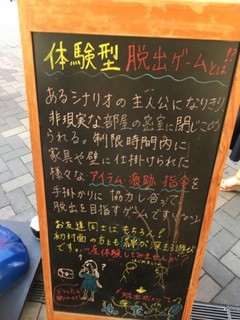 体験型 脱出ゲームとは!?
あるシナリオの主人公になりきり
非現実な部屋の密室に閉じこめ
られる。制限時間内に
家具や壁に仕掛けられた
様々なアイテム 痕跡 指令を
手掛かりに 協力し合って
脱出を目指すゲームです
お友達同士はもちろん!
初対面の方とも絆が
です。一度体験してみませんか?